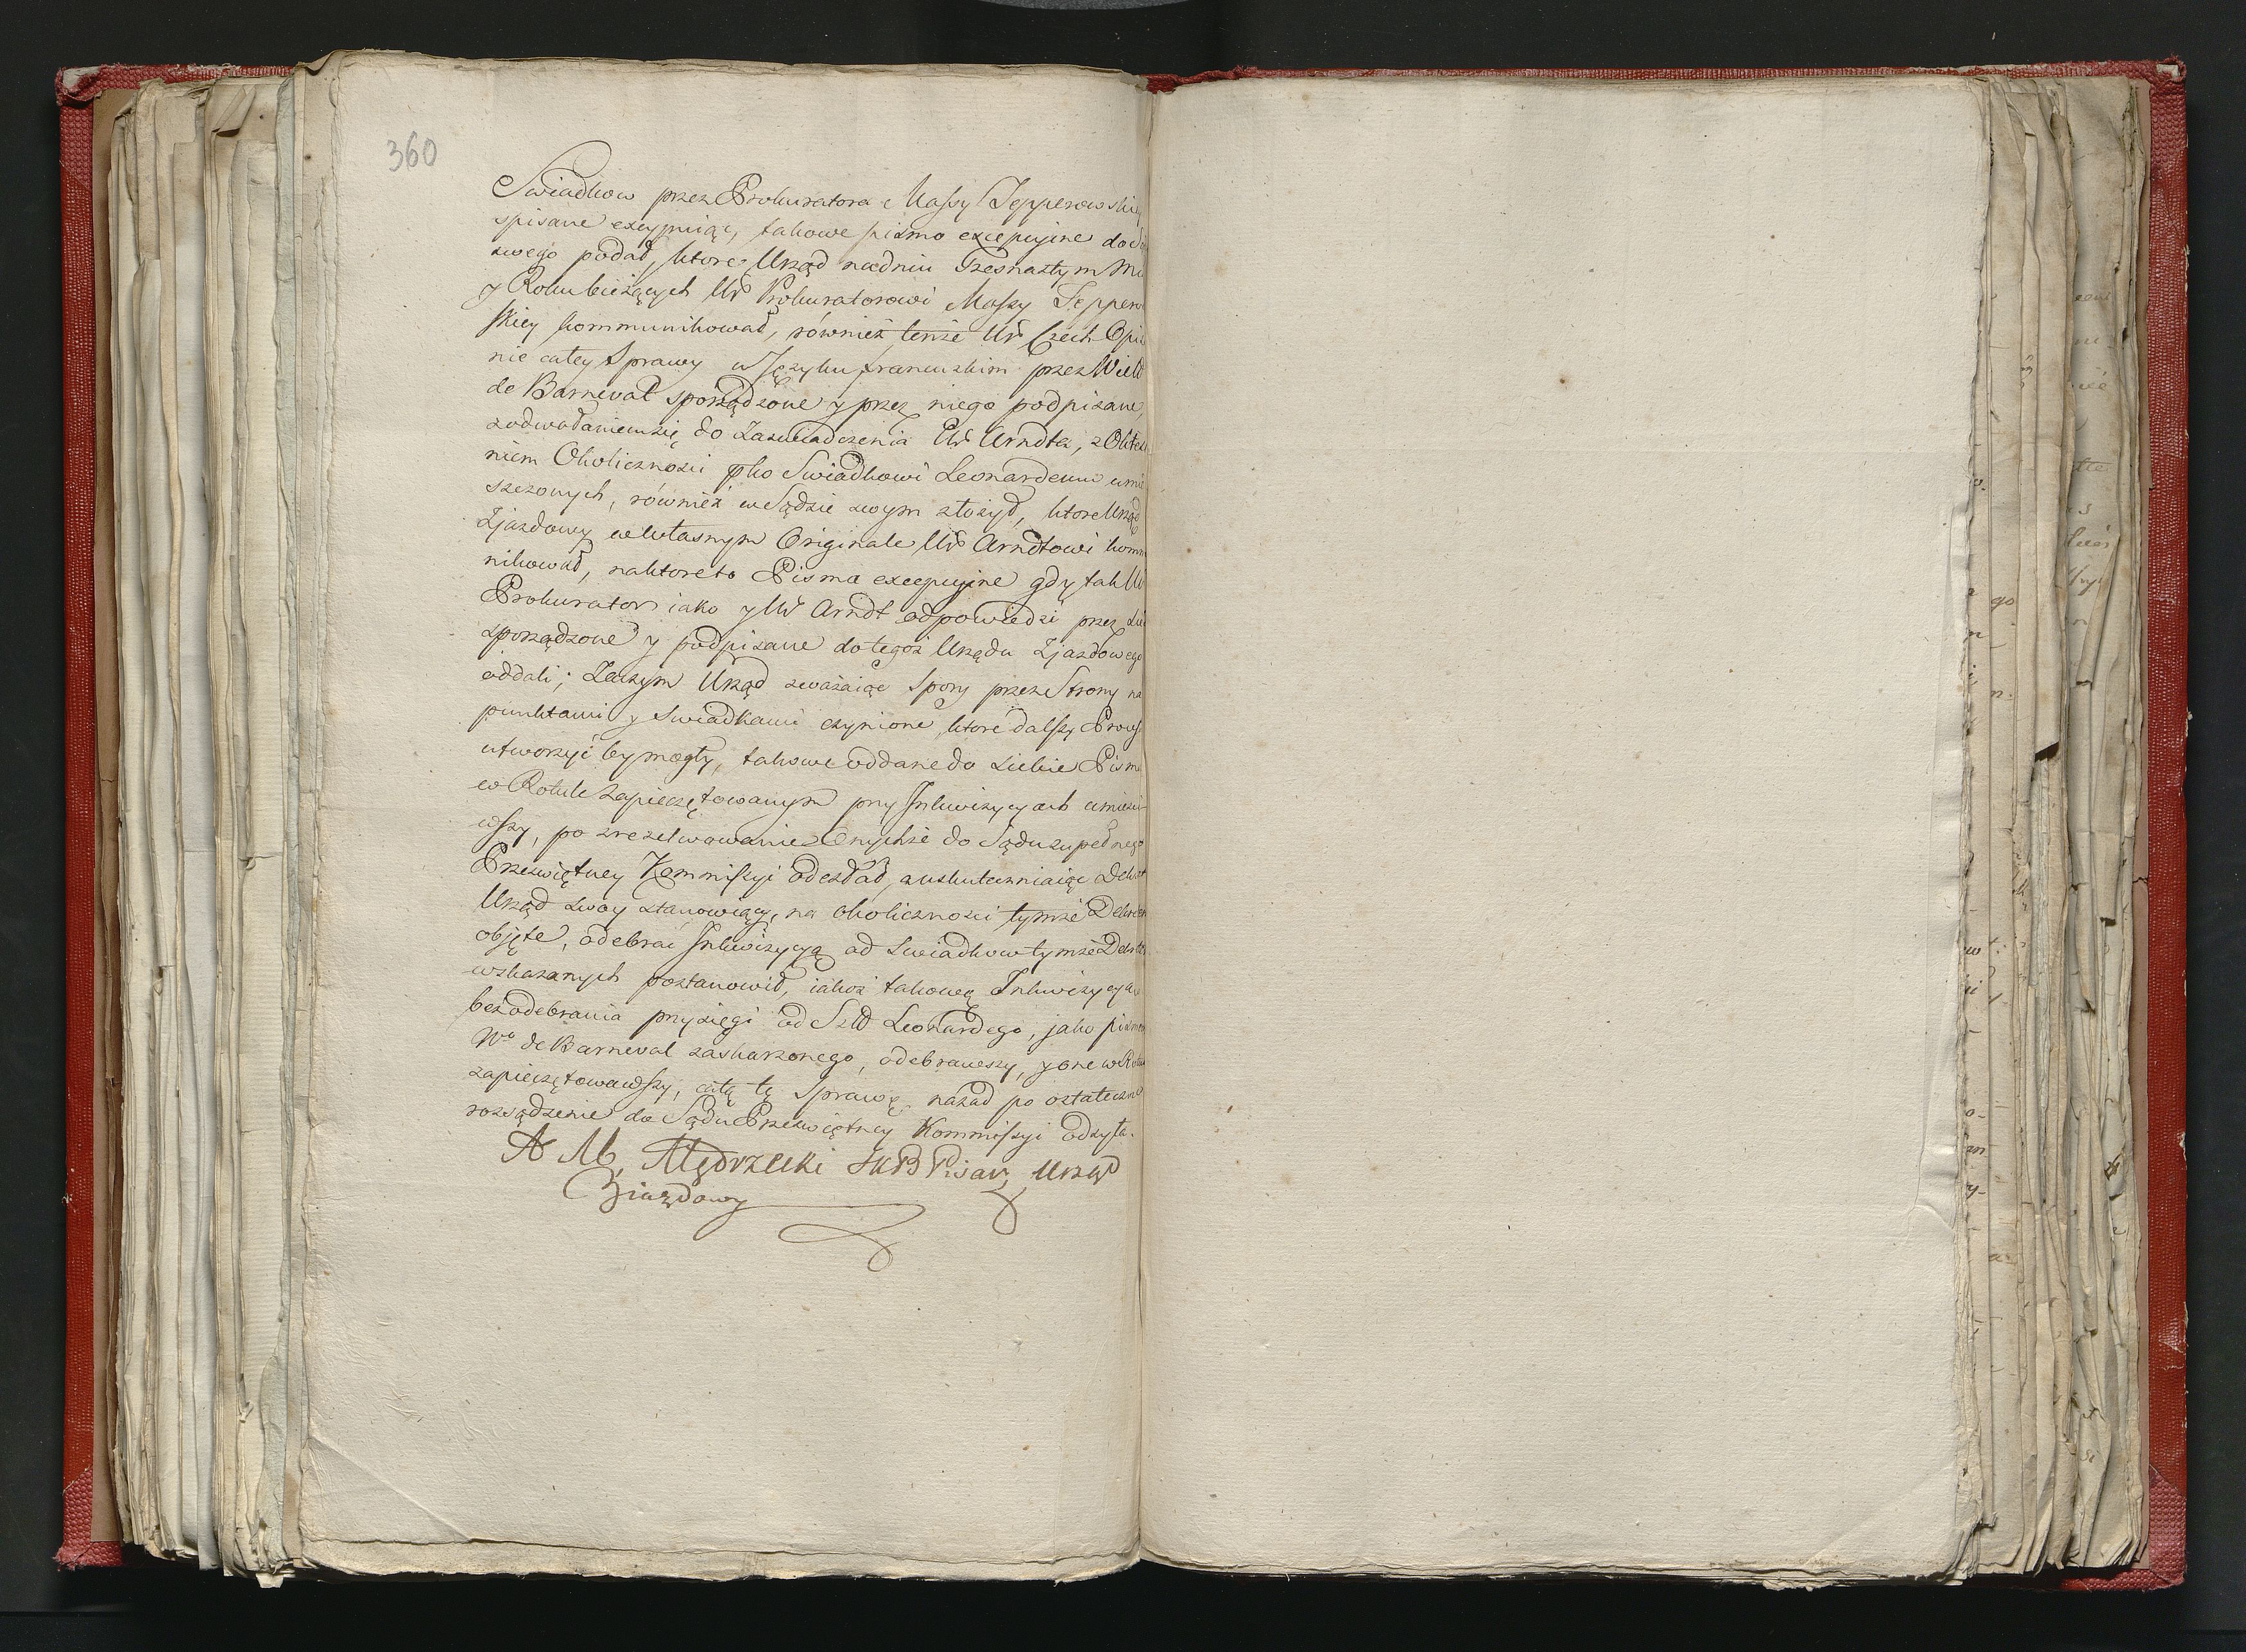 360
Swiadkow przez Prokuratora Massy Tepperowskiey
spisane excypuiąc, takowe pismo excepcyine do
swego podał, ktore Urząd na dniu Trzesnastym
y Roku bieżących Ur Prokuratorowi Massy Teppero
skiey kommunikował, również tenże Ur Czech Opi
nie całey Sprawy w Języku francuzkim przez Wielo
de Barneval sporządzone y przez niego podpisane,
z odwołaniem się do Zaswiadczenia Ur Arndta, z
niem Okolicznosci pko Swiadkowi Leonardemu umie
szczonych, również w Sądzie swym złożył, ktore Urząd
Zjazdowy w własnym Originale Ur Arndtowi komm
nikował, na ktore to Pisma excepcyine gdy tak Ur
Prokurator iako y Ur Arndt odpowiedzi przez
sporządzone y podpisane do tegoż Urzędu Zjazdowego
oddali; Zaczym Urząd zważaiąc Spory przez Strony na
punktami y Swiadkami czynione, ktore dalszy Process
utworzyć by mogły, takowe oddane do siebie Pisma
w Rotule zapieczętowanym przy Inkwizycyach umieści-
wszy, po zrezelwowanie Onychże do Sądu zupełnego
Przeswiętney Kommissyi odesłał, a uskuteczniaiąc Dekret
Urząd swoy stanowiący, na okolicznosci tymże Dekretem
objęte, odebrać Inkwizycyą od Swiadkow tymże Dekretem
wskazanych postanowił, iakoż takową Inkwizycyą
bez odebrania przysięgi od Szld Leonardego, jako pismem
Wo de Barneval zaskarzonego, odebrawszy, y one w Rotule
zapieczętowawszy, całą tę Sprawę nazad po ostateczne
rozsądzenie do Sądu Przeswiętney Kommissyi odsyła.
A M, Mędrzecki SKB Pisarz Urząd
Ziazdowy